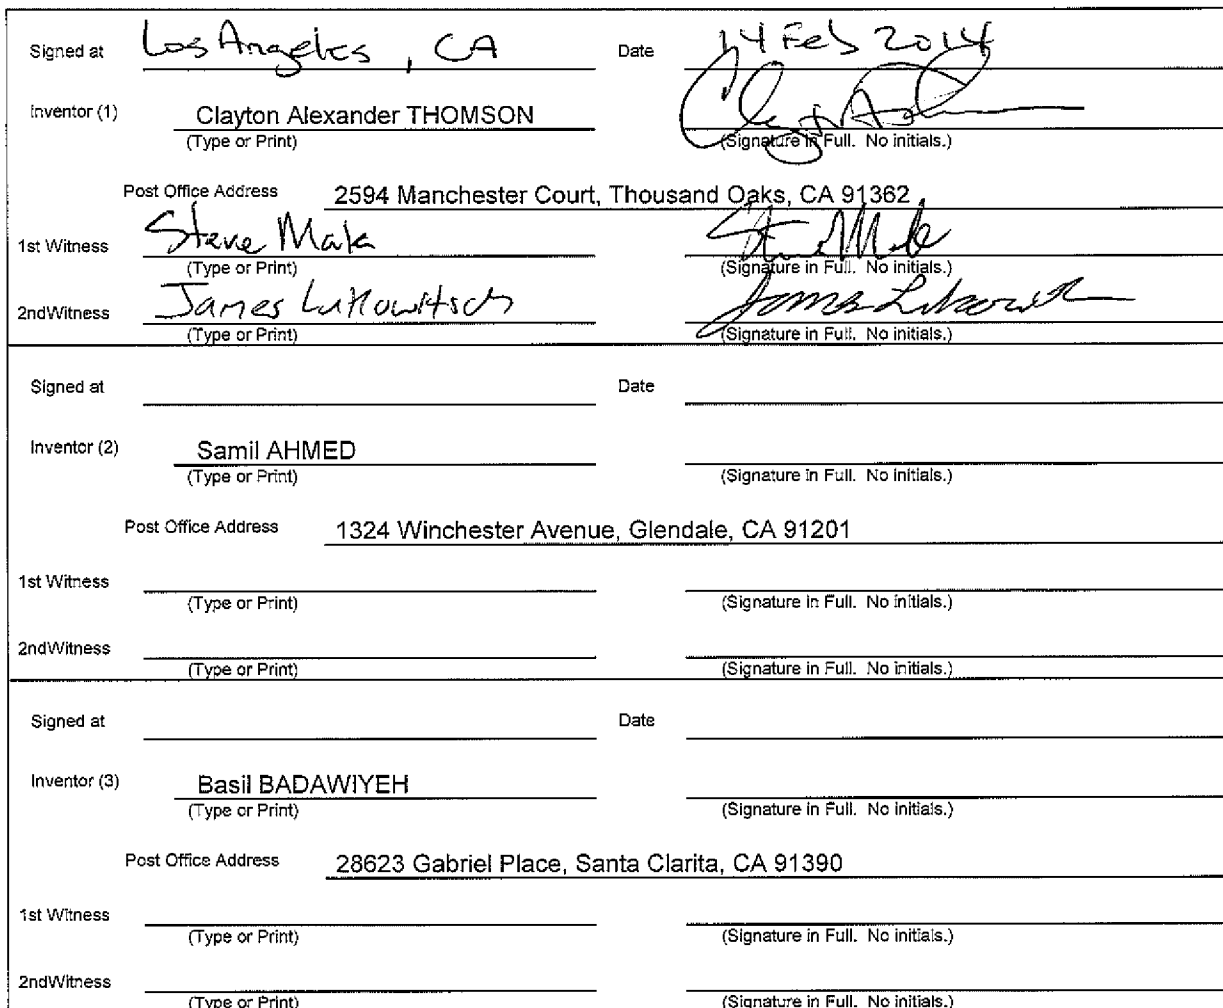 Signed at Los Angeles, CA Date 14 Feb 2014
Inventor (1) Clayton Alexander THOMSON
(Type or Print) (Signature in Full. No initials.)
Post Office Address 2594 Manchester Court, Thousand Oaks, CA 91362
1st Witness Steve Mala
(Type or Print) (Signature in Full. No initials.)
2ndWitness James
(Type or Print) (Signature in Full. No initials.)
Signed at Date
Inventor (2) Samil AHMED
(Type or Print) (Signature in Full. No initials.)
Post Office Address 1324 Winchester Avenue, Glendale, CA 91201
1st Witness
(Type or Print) (Signature in Full. No initials.)
2ndWitness
(Type or Print) (Signature in Full. No initials.)
Signed at Date
Inventor (3) Basil BADAWIYEH
(Type or Print) (Signature in Full. No initials.)
Post Office Address 28623 Gabriel Place, Santa Clarita, CA 91390
1st Witness
(Type or Print) (Signature in Full. No initials.)
2ndWitness
(Type or Print) (Signature in Full. No initials.)